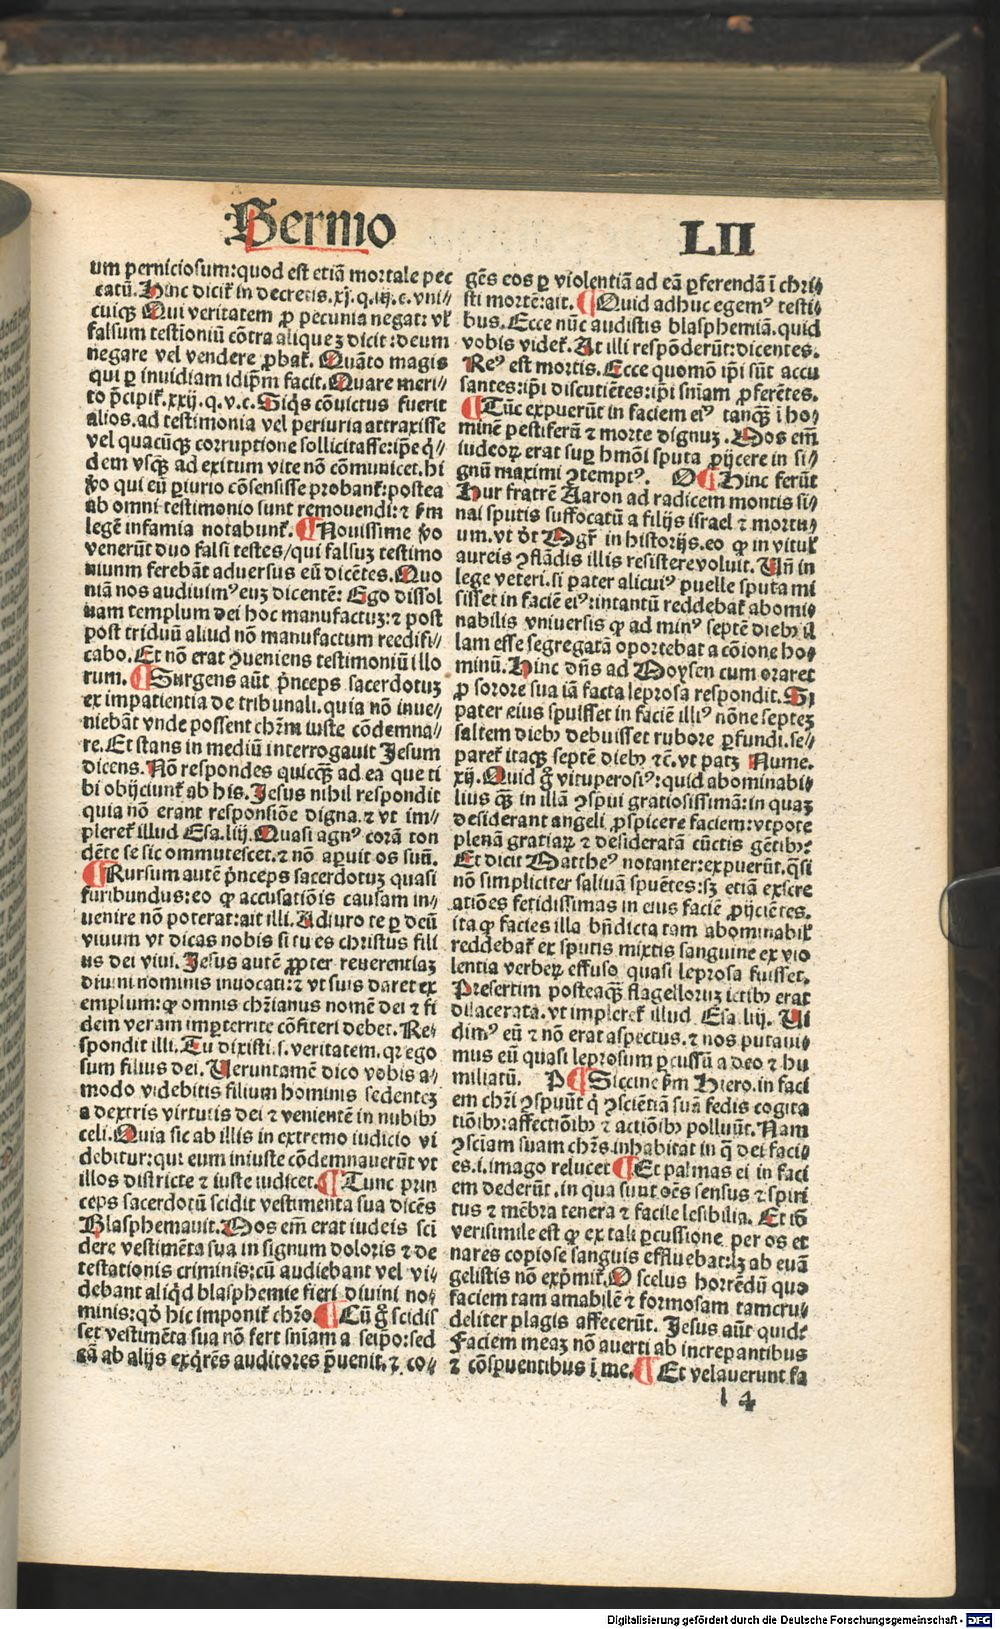 Sermo LII
um perniciosum: quod est etiã mortale pec
catũ. Hinc dicit̃ in decretis. xj. q. iij. c. vni//
cuiq̃. Qui veritatem ꝓ pecunia negat: vl̃
falsum testĩoniũ cõtra aliqueʒ dicit: deum
negare vel vendere ꝓbat̃. Quãto magis
qui ꝑ inuidiam idip̃m facit. Quare meri//
to p̃cipit̃. xxij. q. v. c. Siq̃s cõuictus fuerit
alios. ad testimonia vel periuria attraxisse
vel quacũq̃ corruptione sollicitasse: ip̃e q̃//
dem vsq̃ ad exitum vite nõ cõmunicet. hi
ṽo qui eũ ꝑiurio cõsensisse probant̃: postea
ab omni testimonio sunt remouendi: ⁊ ẜm
legẽ infamia notabunt̃. ¶ Nouissime ṽo
venerũt duo falsi testes/ qui falsuʒ testimo
niunm ferebãt aduersus eũ dicẽtes. Quo
niã nos audiuimꝰ euʒ dicentẽ: Ego dissol
uam templum dei hoc manufactuʒ: ⁊ post
post triduũ aliud nõ manufactum reedifi//
cabo. Et nõ erat ꝯueniens testimoniũ illo
rum. ¶ Surgens aũt p̃nceps sacerdotuʒ
ex impatientia de tribunali. quia nõ inue//
niebãt vnde possent chr̃m iuste cõdemna//
re. Et stans in mediũ interrogauit Jesum
dicens. Nõ respondes quicq̃ ad ea que ti
bi obijciunt̃ ab his. Jesus nihil respondit
quia nõ erant responsiõe digna. ⁊ vt im//
pleret̃ illud Esa. liij. Quasi agnꝰ corã ton
dẽte se sic ommutescet. ⁊ nõ aꝑuit os suũ.
¶ Rursum autẽ p̃nceps sacerdotuʒ quasi
furibundus: eo ꝙ accusatiõis causam in//
uenire nõ poterat: ait illi. Adiuro te ꝑ deũ
viuum vt dicas nobis si tu es christus fili
us dei viui. Jesus autẽ ꝓpter reuerentiaʒ
diuini nominis inuocati: ⁊ vt suis daret ex
emplum: ꝙ omnis chr̃ianus nomẽ dei ⁊ fi
dem veram imꝑterrite cõfiteri debet. Re//
spondit illi. Tu dixisti. s. veritatem. qꝛ ego
sum filius dei. Ueruntamẽ dico vobis a//
modo videbitis filium hominis sedenteʒ
a dextris virtutis dei ⁊ venientẽ in nubibꝫ
celi. Quia sic ab illis in extremo iudicio vi
debitur: qui eum iniuste cõdemnauerũt vt
illos districte ⁊ iuste iudicet. ¶ Tunc prin
ceps sacerdotũ scidit vestimenta sua dicẽs
Blasphemauit. Mos em̃ erat iudeis sci
dere vestimẽta sua in signum doloris ⁊ de
testationis criminis: cũ audiebant vel vi//
debant aliq̃d blasphemie fieri diuini no//
minis: qd̃ hic imponit̃ chr̃o. ¶ Cũ g̃ scidis
set vestimẽta sua nõ fert sñiam a seip̃o: sed
eã ab alijs exq̃rẽs auditores p̃uenit. ⁊ co//
gẽs eos ꝑ violentiã ad eã ꝑferendã ĩ chri//
sti mortẽ: ait. ¶ Quid adhuc egemꝰ testi//
bus. Ecce nũc audistis blasphemiã. quid
vobis videt̃. At illi respõderũt: dicentes.
Reꝰ est mortis. Ecce quomõ ip̃i sũt accu
santes: ip̃i discutiẽtes: ip̃i sñiam ꝓferẽtes.
¶ Tũc expuerũt in faciem eiꝰ tanq̃ʒ ĩ ho//
minẽ pestiferũ ⁊ morte dignuʒ. Mos em̃
iudeoꝝ erat suꝑ hmõi sputa ꝓijcere in si//
gnũ maximi ꝯtemptꝰ. O ¶ Hinc ferũt
Hur fratrẽ Aaron ad radicem montis si//
nai sputis suffocatũ a filijs israel ⁊ mortu//
um. vt dr̃ Mgr̃ in historijs. eo ꝙ in vitul̃
aureis ꝯflãdis illis resistere voluit. Uñ in
lege veteri. si pater alicuiꝰ puelle sputa mi
sisset in faciẽ eiꝰ: intantũ reddebat̃ abomi//
nabilis vniuersis ꝙ ad minꝰ septẽ diebꝫ il
lam esse segregatã oportebat a cõione ho//
minũ. Hinc dñs ad Moysen cum oraret
ꝓ sorore sua iã facta leprosa respondit. Si
pater eius spuisset in faciẽ illiꝰ nõne septeʒ
saltem diebꝫ debuisset rubore ꝑfundi. se//
paret̃ itaqꝫ septẽ diebꝫ ⁊c̃. vt patʒ Nume.
xij. Quid g̃ vituperosiꝰ: quid abominabi//
lius q̃ʒ in illã ꝯspui gratiosissimã: in quaʒ
desiderant angeli ꝓspicere faciem: vtpote
plenã gratiaꝝ ⁊ desideratã cũctis gẽtibꝫ?
Et dicit Mattheꝰ notanter: expuerũt. q̃si
nõ simpliciter saliuã spuẽtes: sʒ etiã excre
atiões fetidissimas in eius faciẽ ꝓijciẽtes.
ita ꝙ facies illa bñdicta tam abominabil̃
reddebat̃ ex sputis mixtis sanguine ex vio
lentia verbeꝝ effuso quasi leprosa fuisset.
Presertim posteaq̃ʒ flagelloruʒ ictibꝫ erat
dilacerata. vt impleret̃ illud Esa. liij. Ui
dimꝰ eũ ⁊ nõ erat aspectus. ⁊ nos putaui//
mus eũ quasi leprosum ꝑcussũ a deo ⁊ hu
miliatũ. P ¶ Siccine ẜm Hiero. in faci
em chr̃i ꝯspuũt q̃ ꝯsciẽtiã suã fedis cogita
tiõibꝫ: affectiõibꝫ ⁊ actiõibꝫ polluũt. Nam
ꝯsciam suam chr̃s inhabitat in q̃ dei faci//
es. i. imago relucet ¶ Et palmas ei in faci
em dederũt. in qua sunt oẽs sensus ⁊ spiri
tus ⁊ mẽbra tenera ⁊ facile lesibilia. Et iõ
verisimile est ꝙ ex tali ꝑcussione per os et
nares copiose sanguis effluebat: lʒ ab euã
gelistis nõ exp̃mit̃. O scelus horrẽdũ quo
faciem tam amabilẽ ⁊ formosam tam cru//
deliter plagis affecerũt. Jesus aũt quid?
Faciem meaʒ nõ auerti ab increpantibus
⁊ cõspuentibus ĩ me. ¶ Et velauerunt fa
l 4
Digitalisierung gefördert durch die Deutsche Forschungsgemeinschaft - DFG